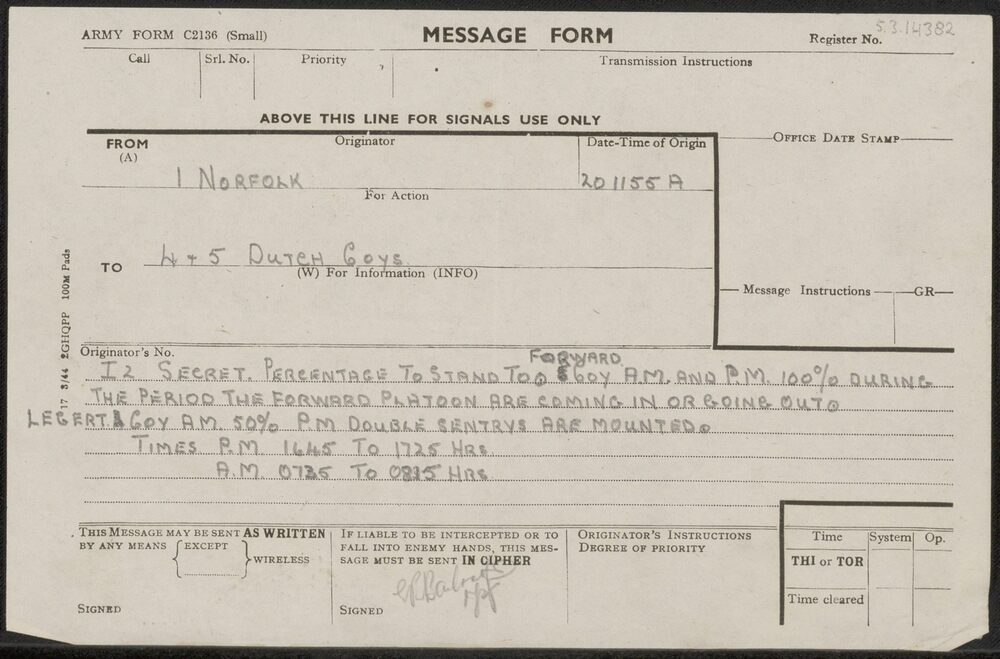 5.3.14382
ARMY FORM C2136 (Small) MESSAGE FORM Register No.
Call Srl. No. Priority Transmission Instructions
ABOVE THIS LINE FOR SIGNALS USE ONLY
FROM Originator Date-Time of Origin OFFICE DATE STAMP
(A)
1 NORFOLK 201155 A
For Action
TO 4 + 5 DUTCH COYS
(W) For Information (INFO)
Message Instructions GR
17 3/44 2GHQPP 100M Pads
Originator's No.
FORWARD
I2 SECRET. PERCENTAGE TO STAND TOO COY A.M. AND P.M. 100% DURING
THE PERIOD THE FORWARD PLATOON ARE COMING IN OR GOING OUT.
COY AM 50% P.M DOUBLE SENTRYS ARE MOUNTED.
TIMES P.M. 1645 TO 1725 HRS
A.M. TO HRS
THIS MESSAGE MAY BE SENT AS WRITTEN IF LIABLE TO BE INTERCEPTED OR TO ORIGINATOR'S INSTRUCTIONS Time System Op.
BY ANY MEANS EXCEPT FALL INTO ENEMY HANDS, THIS MES- DEGREE OF PRIORITY
WIRELESS SAGE MUST BE SENT IN CIPHER THI or TOR
Time cleared
SIGNED SIGNED